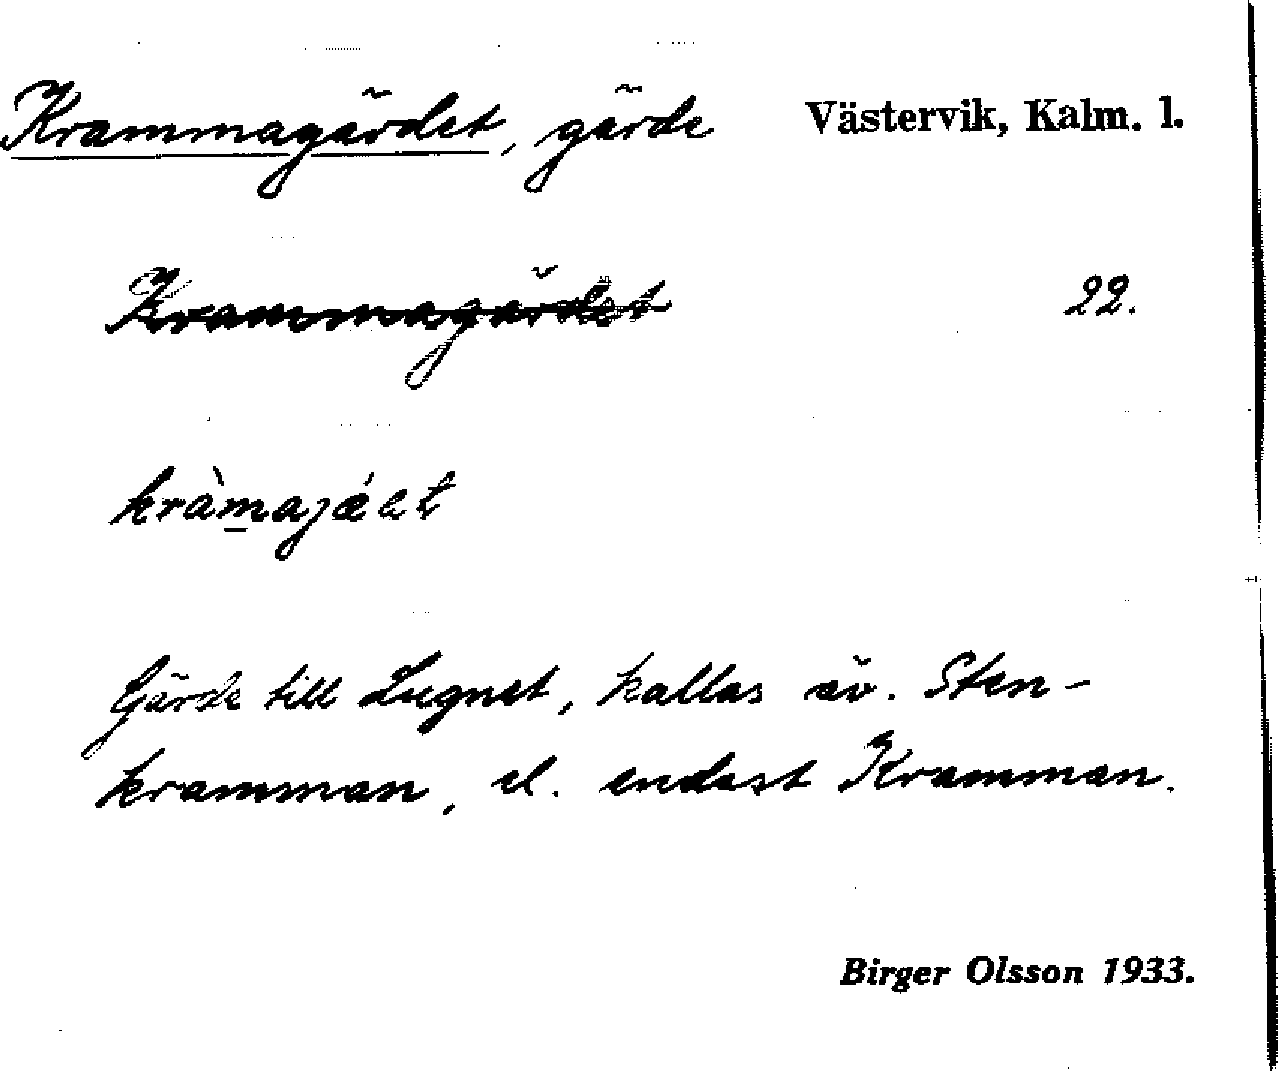 Krammagärdet, gärde Västervik, Kalm. l.
Krammagärdet 22.
kràmajáet
Gärde till Lugnet, kallas äv. Sten-
kramman, el. endast Kramman.
Birger Olsson 1933.